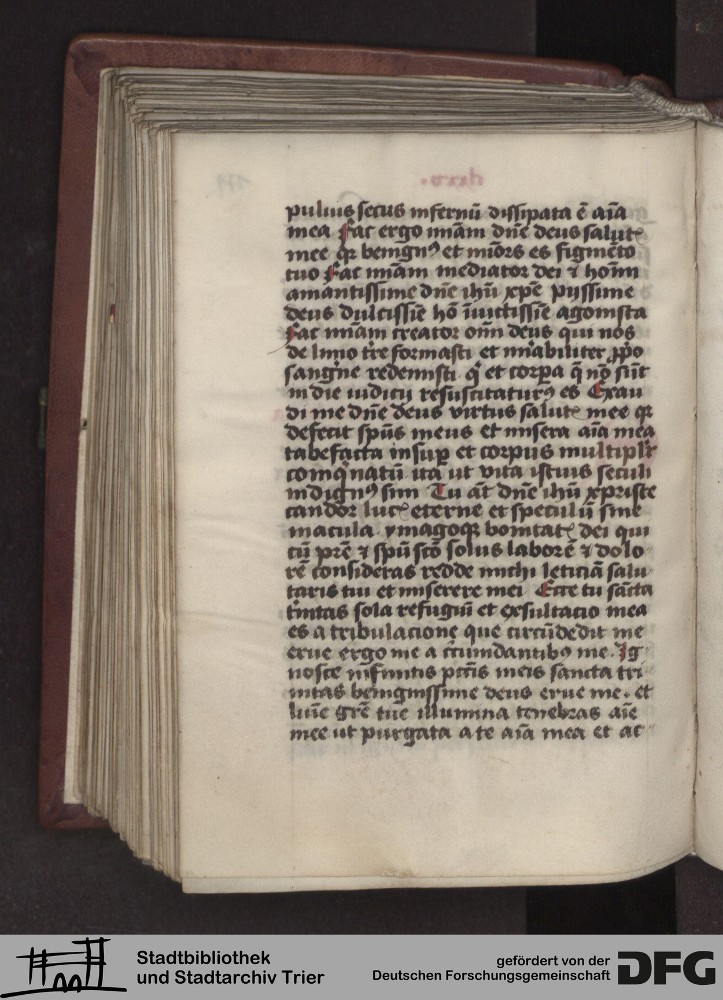 puluis secus infernū dissipata ē aīa
mea Fac ergo mīam dn̄e deus salut᷒
mee qr benign⁹ et mīors es figmēto
tuo Fac mīam mediator dei ⁊ homī
amantissime dn̄e ihū xp̄e pyssime
deus dulcissīe hō īuictissīe agonista
Fac mīam creator om̄ deus qui nos
de limo tr̄e formasti et mirabiliter ꝓpo
sangīne redemisti et corpa q̄ nō sūt
in die iudicij resuscitatur⁹ es Exau
di me dn̄e deus virtus salut᷒ mee qr
defecit sp̄us meus et misera aīa mea
tabefacta insuꝑ et corpus multiplr̄
comq̇natū ita ut vita istius seculi
indign⁹ sim Tu āt dn̄e ihū xpriste
candor luc᷒ eterne et speculū sine
macula ymagoqꝫ bonitat᷒ dei qui
cū pr̄e ⁊ sp̄u scō solus laborē ⁊ dolo
rē consideras redde michi leticiā salu
taris tui et miserere mei Ecce tu sācta
trinitas sola refugiū et exsultacio mea
es a tribulacione que circūdedit me
erue ergo me a circumdantib⁹ me. Ig
nosce infinitis pctīs meis sancta tri
nitas benignissime deus erue me. et
luīe gr̄e tue illumina tenebras aīe
mee ut purgata a te aīa mea et ac
Stadtbibliothek
und Stadtarchiv Trier
gefördert von der
Deutschen Forschungsgemeinschaft
DFG